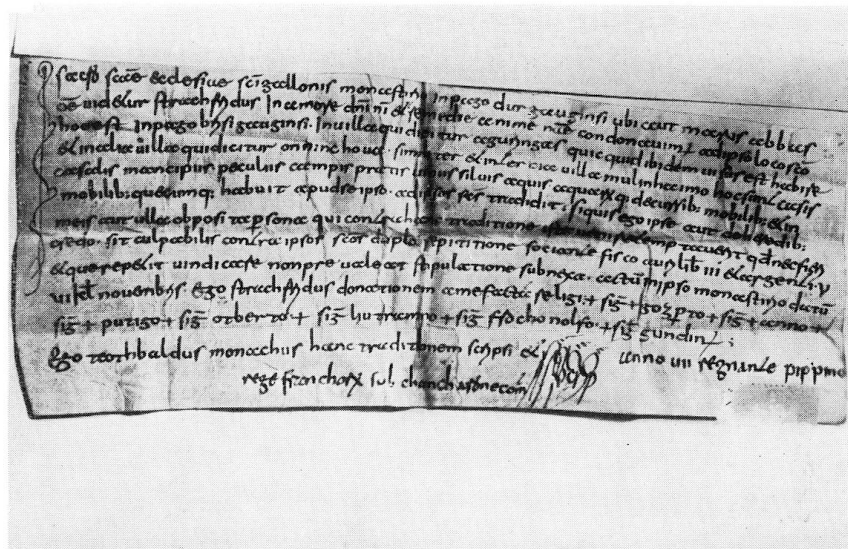 sacro sc̄ē ecclesiae sc̄i gallonis monasterii in pago durgauginsi ubi caut marcus abbas
ēē uidetur strachfridus in amore dn̄i nī et remedie anime nr̄e condonauimꝰ ad ipso loco scō
hoc est in pago hisigauginsi in uilla qui dicitur aguningas quicquid ibidem uisus est habire
et in alia uilla qui dicitur openinhoua similiter et in tercia uilla mulinhaimo hoc sunt casis
casalis mancipiis peculiis campis pratis siluis aquis aquarūq; decursib; mobilib; et in
mobilib; quecumq; habuit apud se ipso ad ipsos scōs tradidit si quis ego ipse aut de heredib;
meis aut ulla opposita persona qui contra hanc traditione
credo sit culpabilis contra ipsos scōs dupla repititione sociante fisco auri lib iii et argenti v
et que repetit uindicare non preualeat stipulatione subnexa actum in ipso monastirio datum
vi kł nouenbris ego strachfridus donationem a me facta religi + sig̃ + gozperto + sig̃ + anno +
sig̃ + putigo + sig̃ otberto + sig̃ liutramno + sig̃ frdechonolfo + sig̃ gundini
ego teothbaldus monachus hanc traditonem scripsi et anno vii regnante pippino
rege franchorū sub chancharone com̄